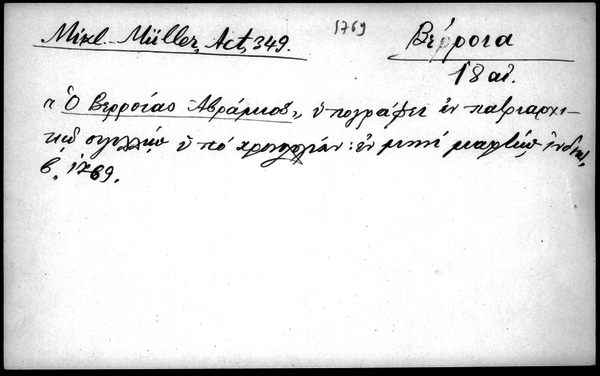 Mikl.-Müller, Act, 349. 1769 Βέρροια
18 αἰ.
"Ὁ Βερροίας Ἀβράμιος„ ὑπογράφει ἐν πατριαρχι-
κῷ σιγιλλίῳ ὑπό χρονολογίαν: ἐν μηνὶ μαρτίῳ ἰνδικ.
β. 1769.